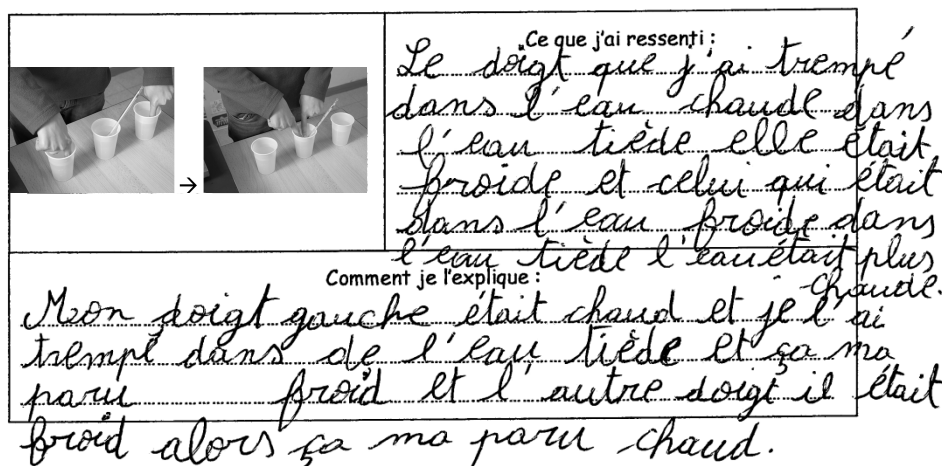 Ce que j'ai ressenti :
Le doigt que j'ai trempé
dans l'eau chaude dans
l'eau tiède elle était
froide et celui qui était
dans l'eau froide dans
l'eau tiède l'eau était plus
chaude.
→
Comment je l'explique :
Mon doigt gauche était chaud et je l'ai
trempé dans de l'eau tiède et ça ma
paru froid et l'autre doigt il était
froid alors ça ma paru chaud.